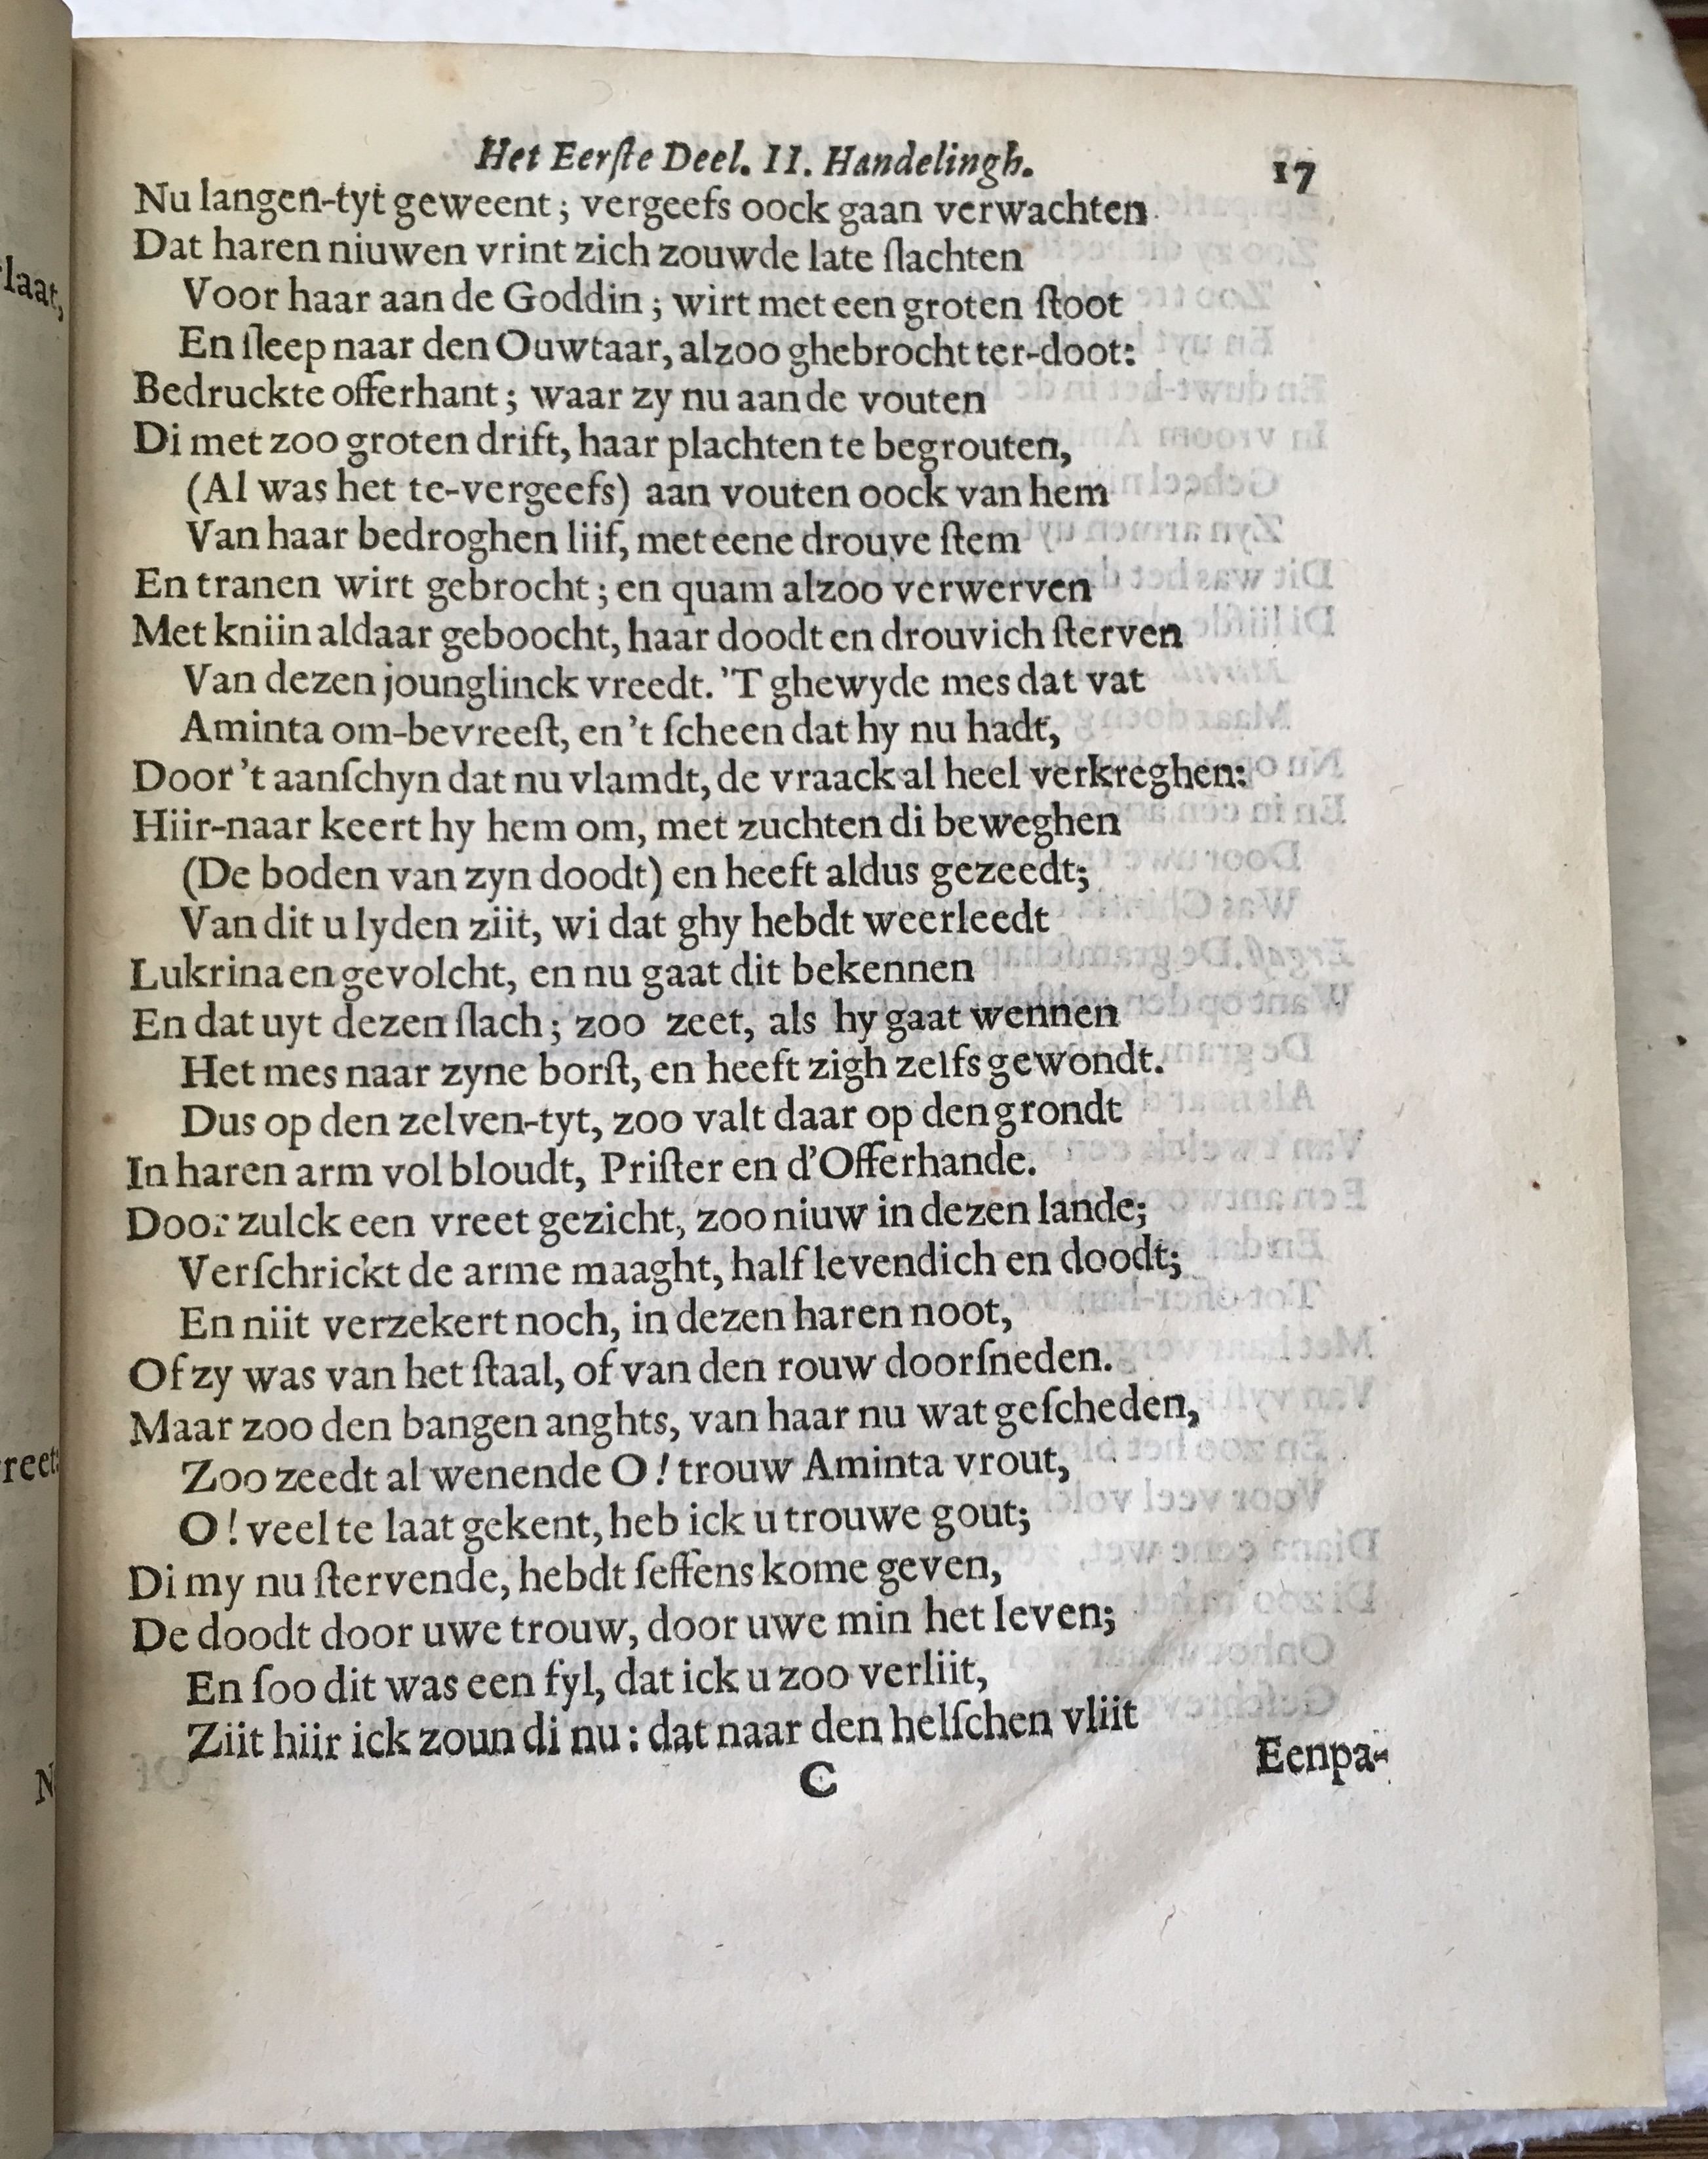 Het Eerſte Deel. II. Handelingh. 17
Nu langen-tyt geweent; vergeefs oock gaan verwachten
Dat haren niuwen vrint zich zouwde late ſlachten
Voor haar aan de Goddin; wirt met een groten ſtoot
En ſleep naar den Ouwtaar, alzoo ghebrocht ter-doot:
Bedruckte offerhant; waar zy nu aan de vouten
Di met zoo groten drift, haar plachten te begrouten,
(Al was het te-vergeefs) aan vouten oock van hem
Van haar bedroghen liif, met eene drouve ſtem
En tranen wirt gebrocht; en quam alzoo verwerven
Met kniin aldaar geboocht, haar doodt en drouvich ſterven
Van dezen jounglinck vreedt. 'T ghewyde mes dat vat
Aminta om-bevreeſt, en 't ſcheen dat hy nu hadt,
Door 't aanſchyn dat nu vlamdt, de vraack al heel verkreghen:
Hiir-naar keert hy hem om, met zuchten di beweghen
(De boden van zyn doodt) en heeft aldus gezeedt;
Van dit u lyden ziit, wi dat ghy hebdt weerleedt
Lukrina en gevolcht, en nu gaat dit bekennen
En dat uyt dezen ſlach; zoo zeet, als hy gaat wennen
Het mes naar zyne borſt, en heeft zigh zelfs gewondt.
Dus op den zelven-tyt, zoo valt daar op den grondt
In haren arm vol bloudt, Priſter en d'Offerhande.
Door zulck een vreet gezicht, zoo niuw in dezen lande;
Verſchrickt de arme maaght, half levendich en doodt;
En niit verzekert noch, in dezen haren noot,
Of zy was van het ſtaal, of van den rouw doorſneden.
Maar zoo den bangen anghts, van haar nu wat geſcheden,
Zoo zeedt al wenende O! trouw Aminta vrout,
O! veel te laat gekent, heb ick u trouwe gout;
Di my nu ſtervende, hebdt ſeffens kome geven,
De doodt door uwe trouw, door uwe min het leven;
En ſoo dit was een fyl, dat ick u zoo verliit,
Ziit hiir ick zoun di nu: dat naar den helſchen vliit
C Eenpa-
laat,
reet:
N